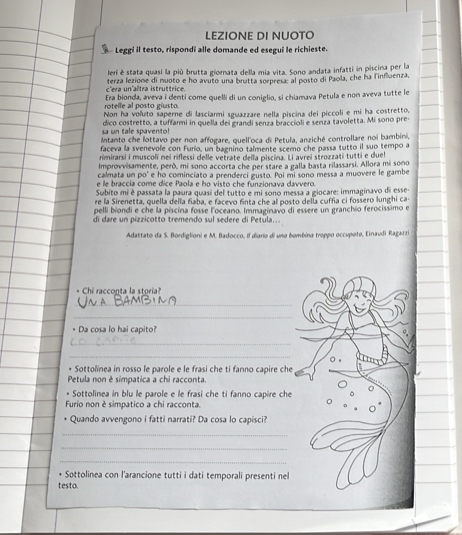 LEZIONE DI NUOTO
Leggi il testo, rispondi alle domande ed esegui le richieste.
Ieri è stata quasi la più brutta giornata della mia vita. Sono andata infatti in piscina per la
terza lezione di nuoto e ho avuto una brutta sorpresa: al posto di Paola, che ha l'influenza,
c'era un'altra istruttrice.
Era bionda, aveva i denti come quelli di un coniglio, si chiamava Petula e non aveva tutte le
rotelle al posto giusto.
Non ha voluto saperne di lasciarmi sguazzare nella piscina dei piccoli e mi ha costretto,
dico costretto, a tuffarmi in quella dei grandi senza braccioli e senza tavoletta. Mi sono pre-
sa un tale spavento!
Intanto che lottavo per non affogare, quell'oca di Petula, anziché controllare noi bambini,
faceva la svenevole con Furio, un bagnino talmente scemo che passa tutto il suo tempo a
rimirarsi i muscoli nei riflessi delle vetrate della piscina. Li avrei strozzati tutti e due!
Improvvisamente, però, mi sono accorta che per stare a galla basta rilassarsi. Allora mi sono
calmata un po' e ho cominciato a prenderci gusto. Poi mi sono messa a muovere le gambe
e le braccia come dice Paola e ho visto che funzionava davvero.
Subito mi è passata la paura quasi del tutto e mi sono messa a giocare: immaginavo di esse-
re la Sirenetta, quella della fiaba, e facevo finta che al posto della cuffia ci fossero lunghi ca-
pelli biondi e che la piscina fosse l'oceano. Immaginavo di essere un granchio ferocissimo e
di dare un pizzicotto tremendo sul sedere di Petula...
Adattato da S. Bordiglioni e M. Badocco, Il diario di una bambina troppo occupata, Einaudi Ragazzi
• Chi racconta la storia?
UNA BAMBINA
• Da cosa lo hai capito?
LO CAPITO
• Sottolinea in rosso le parole e le frasi che ti fanno capire che
Petula non è simpatica a chi racconta.
• Sottolinea in blu le parole e le frasi che ti fanno capire che
Furio non è simpatico a chi racconta.
• Quando avvengono i fatti narrati? Da cosa lo capisci?
• Sottolinea con l'arancione tutti i dati temporali presenti nel
testo.